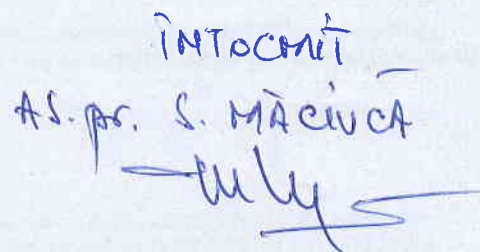 ÎNTOCMIT
AS. pr. S. MĂCIUCĂ